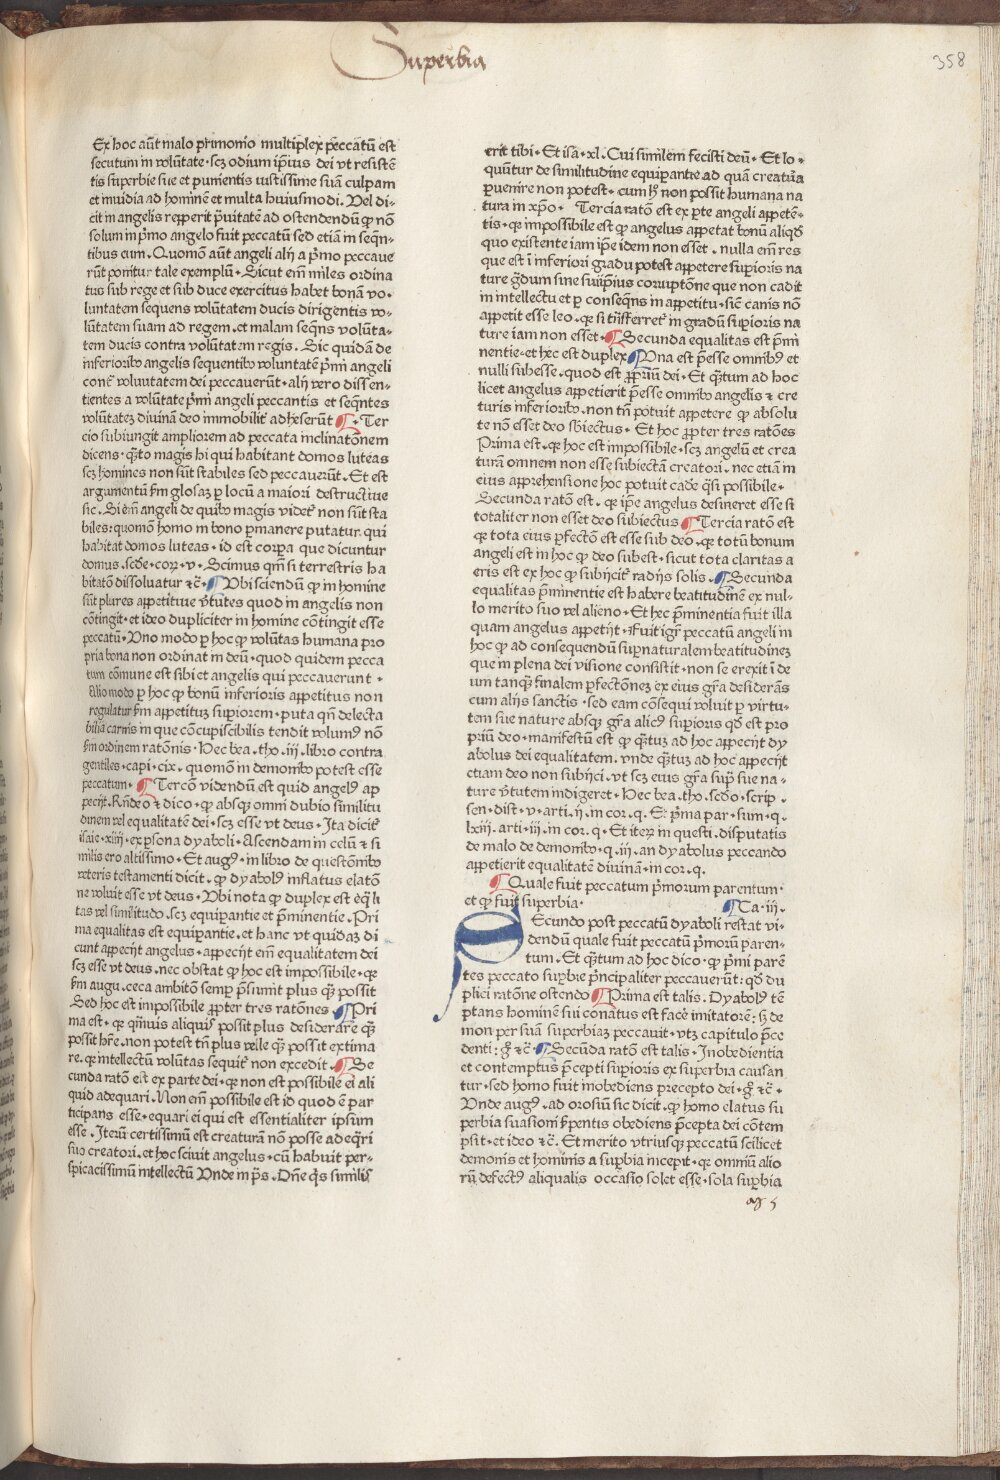 Superbia
358
Ex hoc aūt malo pͥmonio multiplex peccatū est
secutum in volūtate·scꝫ odium ip̄ius dei vt resistē
tis superbie sue et punientis iustissime suā culpam
et inuidia ad hominē et multa huiusmodi. Vel di-
cit in angelis repperit pͣuitatē ad ostendendū ꝙ nō
solum in pͥmo angelo fuit peccatū sed etiā in seqn̄-
tibus eum. Quomō aūt angeli alij a pͥmo peccaue
rūt ponitur tale exemplū. Sicut em̄ miles ordina
tus sub rege et sub duce exercitus habet bonā vo-
luntatem sequens volūtatem ducis dirigentis vo-
lūtatem suam ad regem. et malam seqn̄s volūta-
tem ducis contra volūtatem regis. Sic quidā de
inferioribꝰ angelis sequentibꝰ voluntatē pͥmi angeli
contͣ voluntatem dei peccauerūt. alij vero dissen-
tientes a volūtate pͥmi angeli peccantis et seqn̄tes
volūtateꝫ diuinā deo immobilitͥ adheserūt ¶. Ter
cio subiungit ampliorem ad peccata inclinatōnem
dicens. qͣto magis hi qui habitant domos luteas
scꝫ homines non sūt stabiles sed peccauerūt. Et est
argumentū ẜm glosaꝫ ꝑ locū a maiori destructiue
sic. Si em̄ angeli de quibꝰ magis videtͬ non sūt sta
biles: quomō homo in bono ꝑmanere putatur. qui
habitat domos luteas. id est corpͦa que dicuntur
domus. scd̄e. corꝝ. v. Scimus qm̄ si terrestris ha
bitatō dissoluatur ⁊c̄. ¶ Vbi sciendū ꝙ in homine
sūt plures appetitiue v̓tutes quod in angelis non
cōtingit. et ideo dupliciter in homine cōtingit esse
peccatū. Vno modo ꝑ hoc ꝙ volūtas humana pro
pria bona non ordinat in deū. quod quidem pecca
tum cōmune est sibi et angelis qui peccauerunt.
Alio modo ꝑ hoc ꝙ bonū inferioris appetitus non
regulatur ẜm appetituꝫ supͥiorem. puta qn̄ delecta
bilia carnis in que cōcupiscibilis tendit volumꝰ nō
ẜm ordinem ratōnis. Hec bea. tho. iij. libro contra
gentiles. capi. cix. quomō in demonibꝰ potest esse
peccatum. ¶ Tercō videndū est quid angelꝰ ap
pecijt. Rn̄deo ⁊ dico. ꝙ absqꝫ omni dubio similitu
dinem vel equalitatē dei. scꝫ esse vt deus. Ita dicitͬ
isaie. xiiij. ex ꝑsona dyaboli. Ascendam in celū ⁊ si
milis ero altissimo. Et augꝰ. in libro de questōnibꝰ
veteris testamenti dicit. ꝙ dyabolꝰ inflatus elatōe
ne voluit esse vt deus. Vbi nota ꝙ duplex est eqͣli
tas vel similitudo. scꝫ equiparantie et pͤminentie. Pri
ma equalitas est equiꝑantie. et hanc vt quidaꝫ di
cunt appecijt angelus. appecijt em̄ equalitatem dei
scꝫ esse vt deus. nec obstat ꝙ hoc est impossibile. qꝛ
ẜm augu. ceca ambitō semꝑ pͥsumit plus qͣꝫ possit
Sed hoc est impossibile ꝓpter tres ratōnes. ¶ Pri
ma est. qꝛ qͣmuis aliquis possit plus desiderare qͣꝫ
possit hr̄e. non potest tn̄ plus velle qͣꝫ possit extima
re. qꝛ intellectū volūtas sequitͬ non excedit. ¶ Se
cunda ratō est ex parte dei. qꝛ non est possibile ei ali
quid adequari. Non em̄ possibile est id quod ē par
ticipans esse. equari ei qui est essentialiter ipsum
esse. Iterū certissimū est creaturā nō posse adeqͣri
suo creatori. et hoc sciuit angelus. cū habuit per-
spicacissimū intellectū Vnde in pͣs. Dn̄e qͥs similis
erit tibi. Et isa. xl. Cui similem fecisti deū. Et lo-
quūtur de similitudine equiꝑantie ad quā creatura
ꝑuenire non potest. cum hͨ non possit humana na
tura in xp̄o. Tercia ratō est ex ꝑte angeli appetē-
tis. qꝛ impossibile est ꝙ angelus appetat bonū aliqd̄
quo existente iam ip̄e idem non esset. nulla em̄ res
que est ī inferiori gradu potest appetere supͥioris na
ture gͣdum sine suiip̄ius corruptōne que non cadit
in intellectu et ꝑ conseqn̄s in appetitu. sic̄ canis nō
appetit esse leo. qꝛ si trͣsferretͬ in gradū supͥioris na
ture iam non esset. ¶ Secunda equalitas est pͤmi
nentie. et hec est duplex ¶ Vna est pͤesse omnibꝰ et
nulli subesse. quod est ꝓpriū dei. Et qͣꝫtum ad hoc
licet angelus appetierit pͤesse omnibꝰ angelis ⁊ cre
turis inferioribꝰ. non tn̄ potuit appetere ꝙ absolu
te nō esset deo sbͥiectus. Et hoc ꝓpter tres ratōes
Prima est. qꝛ hoc est impossibile. scꝫ angelū et crea
turā omnem non esse subiectā creatori. nec etiā in
eius apprehensione hoc potuit cadeͬ qͣsi possibile.
Secunda ratō est. qꝛ ip̄e angelus desineret esse si
totaliter non esset deo subiectus ¶ Tercia ratō est
qꝛ tota eius ꝑfectō est esse sub deo. qꝛ totū bonum
angeli est in hoc ꝙ deo subest. sicut tota claritas a
eris est ex hoc ꝙ subijcitͬ radijs solis. ¶ Secunda
equalitas pͤminentie est habere beatitudinē ex nul-
lo merito suo vel alieno. Et hec pͤminentia fuit illa
quam angelus appetijt. Fuit igͬ peccatū angeli in
hoc ꝙ ad consequendū supͣnaturalem beatitudineꝫ
que in plena dei visione consistit. non se erexit ī de
um tanqͣꝫ finalem ꝑfectōneꝫ ex eius grͣa desiderās
cum alijs sanctis. sed eam cōsequi voluit ꝑ virtu-
tem sue nature absqꝫ grͣa alicꝰ supͥioris qd̄ est pro
priū deo. manifestū est ꝙ qͣꝫtuꝫ ad hoc appecijt dy
abolus dei equalitatem. vnde qͣꝫtuꝫ ad hoc appecijt
etiam deo non subijci. vt scꝫ eius grͣa supͣ sue na-
ture v̓tutem indigeret. Hec bea. tho. scd̄o. scrip.
sen. dist. v. arti. ij. in cor. q. Et pͥma par. sum. q.
lxiij. arti. iij. in cor. q. Et iteꝝ in questi. disputatis
de malo de demonibꝰ. q. iij. an dyabolus peccando
appetierit equalitatē diuinā. in cor. q.
¶ Quale fuit peccatum pͥmorum parentum.
et ꝙ fuit superbia. ¶ Ca. iij.
SEcundo post peccatū dyaboli restat vi-
dendū quale fuit peccatū pͥmorū paren-
tum. Et qͣꝫtum ad hoc dico. ꝙ pͥmi parē
tes peccato supͣbie pͥncipaliter peccauerūt: qd̄ du
plici ratōne ostendo ¶ Prima est talis. Dyabolꝰ tē
ptans hominē sui conatus est faceͬ imitatorē: sꝫ de
mon per suā superbiaꝫ peccauit. vtꝫ capitulo pͤce
denti: gͦ ⁊c̄. ¶ Secūda ratō est talis. Inobedientia
et contemptus pͤcepti supͥioris ex superbia causan
tur. sed homo fuit inobediens precepto dei. gͦ ⁊c̄.
Vnde augꝰ. ad orosiū sic dicit. ꝙ homo elatus su
perbia suasioni ẜpentis obediens pͤcepta dei cōtem
psit. et ideo ⁊c̄. Et merito vtriusqꝫ peccatū scilicet
demonis et hominis a supͣbia incepit. qꝛ omniū alio
rū defectꝰ aliqualis occasio solet esse. sola supͣbia